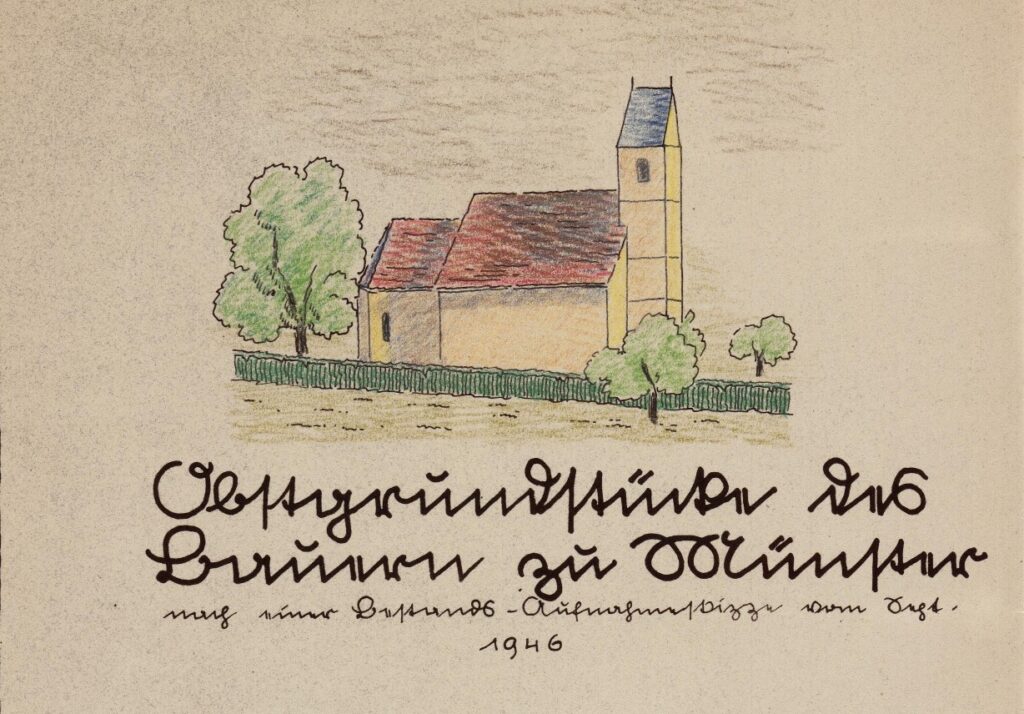 Obstgrundstücke des
Bauern zu Münster
nach einer Bestands-Aufnahmeskizze vom Sept.
1946